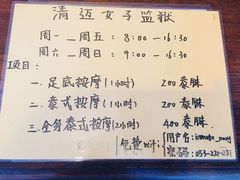 清迈女子监狱
周一 — 周五：8:00 — 16:30
周六 — 周日：9:00 — 16:30
项目：
一.足底按摩(1小时) 200泰铢
二.泰式按摩(1小时) 200泰铢
三.全身泰式按摩(2小时) 400泰铢
免费wifi
用户名:
密码: 053-231-231